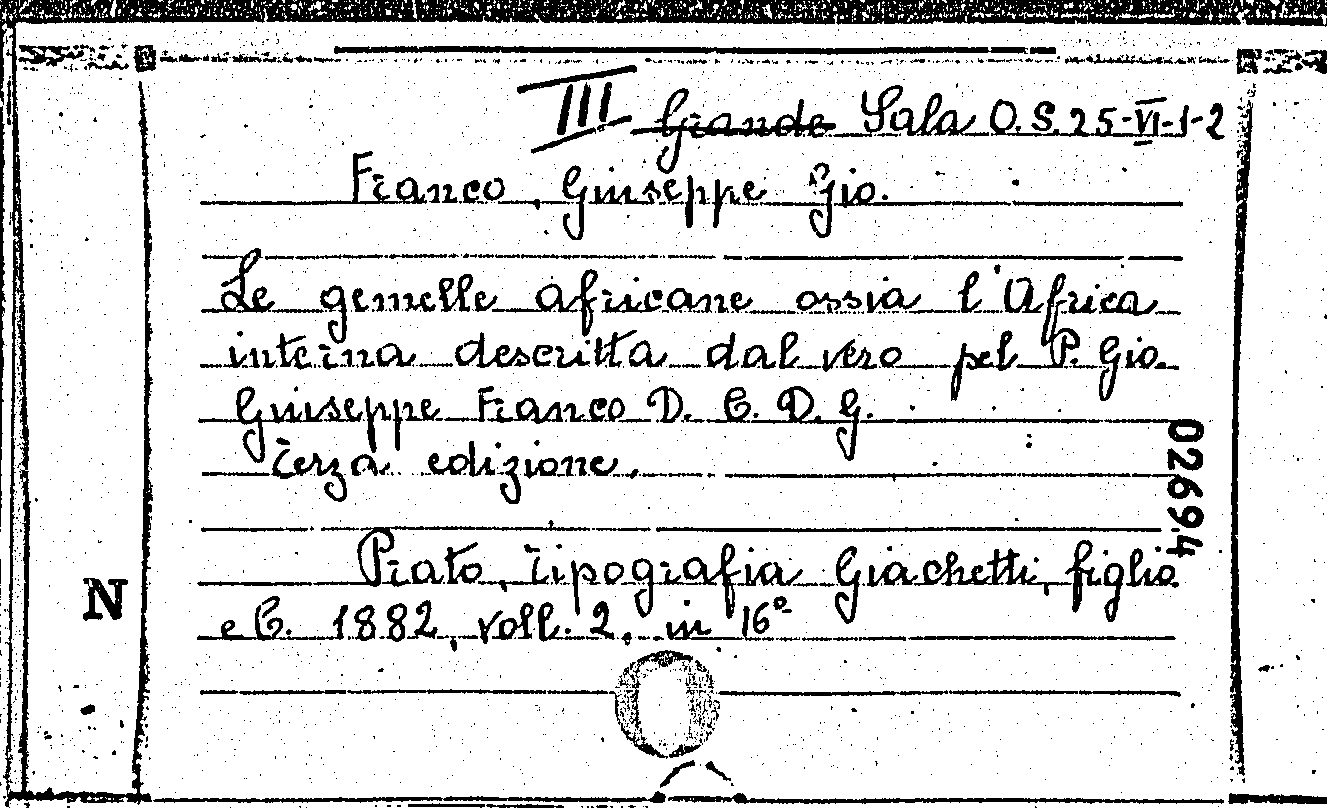 III Grande Sala O.S. 25-VI-1-2
Franco, Giuseppe Gio.
Le gemelle africane ossia l'Africa
interna descritta dal vero pel P. Gio.
Giuseppe Franco D. C. D. G.
Terza edizione.
Prato, Tipografia Giachetti, figlio
e C. 1882, voll. 2, in 16º
02694
N